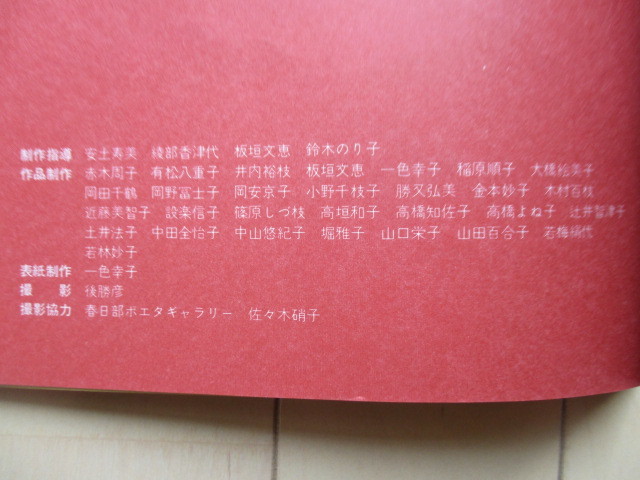 制作指導 安土寿美 綾部香津代 板垣文恵 鈴木のり子
作品制作 赤木周子 有松八重子 井内裕枝 板垣文恵 一色幸子 稲原順子 大橋絵美子
岡田千鶴 岡野冨士子 岡安京子 小野千枝子 勝又弘美 金本妙子 木村百枝
近藤美智子 設楽信子 篠原しづ枝 高垣和子 高橋知佐子 高橋よね子 辻井智津子
土井法子 中田全怡子 中山悠紀子 堀雅子 山口栄子 山田百合子 若梅槙代
若林妙子
表紙制作 一色幸子
撮影 後勝彦
撮影協力 春日部ポエタギャラリー 佐々木硝子